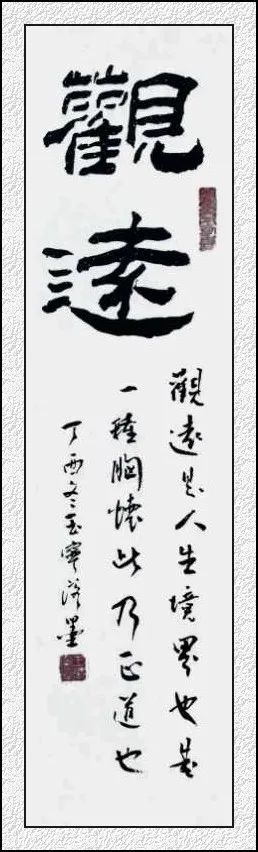 觀遠
觀遠是人生境界也是
一種胸懷此乃正道也
丁酉冬玉寧落墨